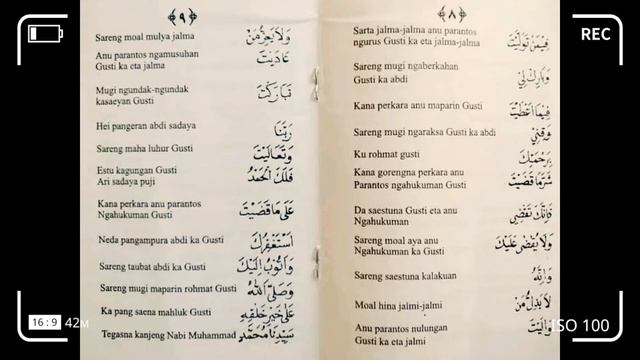 REC
﴿٨﴾
Sarta jalma-jalma anu parantos
ngurus Gusti ka eta jalma-jalma
فِيْمَنْ تَوَلَّيْتَ
Sareng mugi ngaberkahan
Gusti ka abdi
وَبَارِكْ لِيْ
Kana perkara anu maparin Gusti
فِيْمَا اَعْطَيْتَ
Sareng mugi ngaraksa Gusti ka abdi
وَقِنِيْ
Ku rohmat gusti
بِرَحْمَتِكَ
Kana gorengna perkara anu
Parantos ngahukuman Gusti
شَرَّمَا قَضَيْتَ
Da saestuna Gusti eta anu
Ngahukuman
فَاِنَّكَ تَقْضِيْ
Sareng moal aya anu
Ngahukuman ka Gusti
وَلَا يُقْضٰى عَلَيْكَ
Sareng saestuna kalakuan
وَاِنَّهُ
Moal hina jalmi-jalmi
لَا يَذِلُّ مَنْ
Anu parantos nulungan
Gusti ka eta jalmi
وَالَيْتَ
﴿٩﴾
Sareng moal mulya jalma
وَلَا يَعِزُّ مَنْ
Anu parantos ngamusuhan
Gusti ka eta jalma
عَادَيْتَ
Mugi ngundak-ngundak
kasaeyan Gusti
تَبَارَكْتَ
Hei pangeran abdi sadaya
رَبَّنَا
Sareng maha luhur Gusti
وَتَعَالَيْتَ
Estu kagungan Gusti
Ari sadaya puji
فَلَكَ الْحَمْدُ
Kana perkara anu parantos
Ngahukuman Gusti
عَلٰى مَا قَضَيْتَ
Neda pangampura abdi ka Gusti
اَسْتَغْفِرُكَ
Sareng taubat abdi ka Gusti
وَاَتُوْبُ اِلَيْكَ
Sareng mugi maparin rohmat Gusti
وَصَلَّى اللّٰهُ
Ka pang saena mahluk Gusti
عَلٰى خَيْرِ خَلْقِهِ
Tegasna kanjeng Nabi Muhammad
سَيِّدِنَا مُحَمَّدٍ
16:9 42M
ISO 100